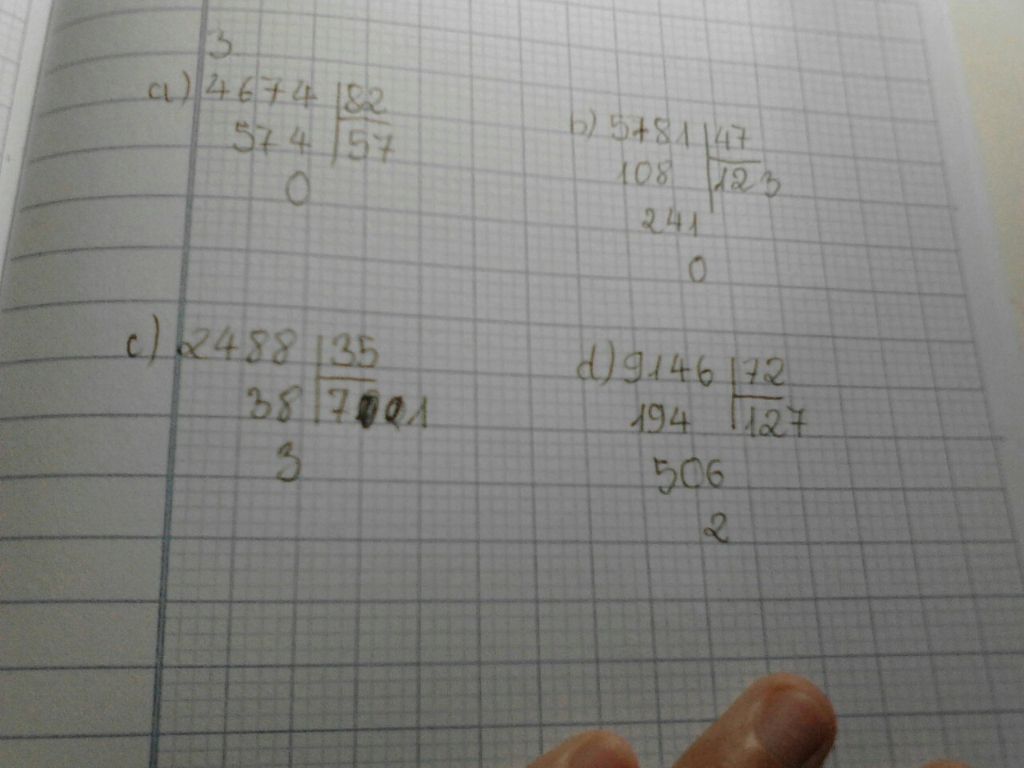 3
a) 4674 82
574 57
0
b) 5781 47
108 123
241
0
c) 2488 35
38 71
3
d) 9146 72
194 127
506
2